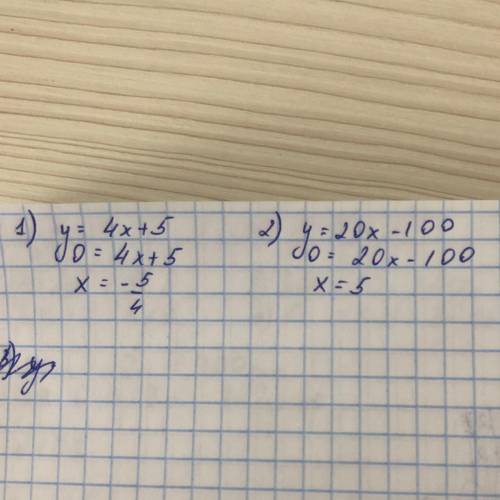 1) y = 4x+5
0 = 4x+5
x = -5/4
2) y = 20x - 100
0 = 20x - 100
x = 5